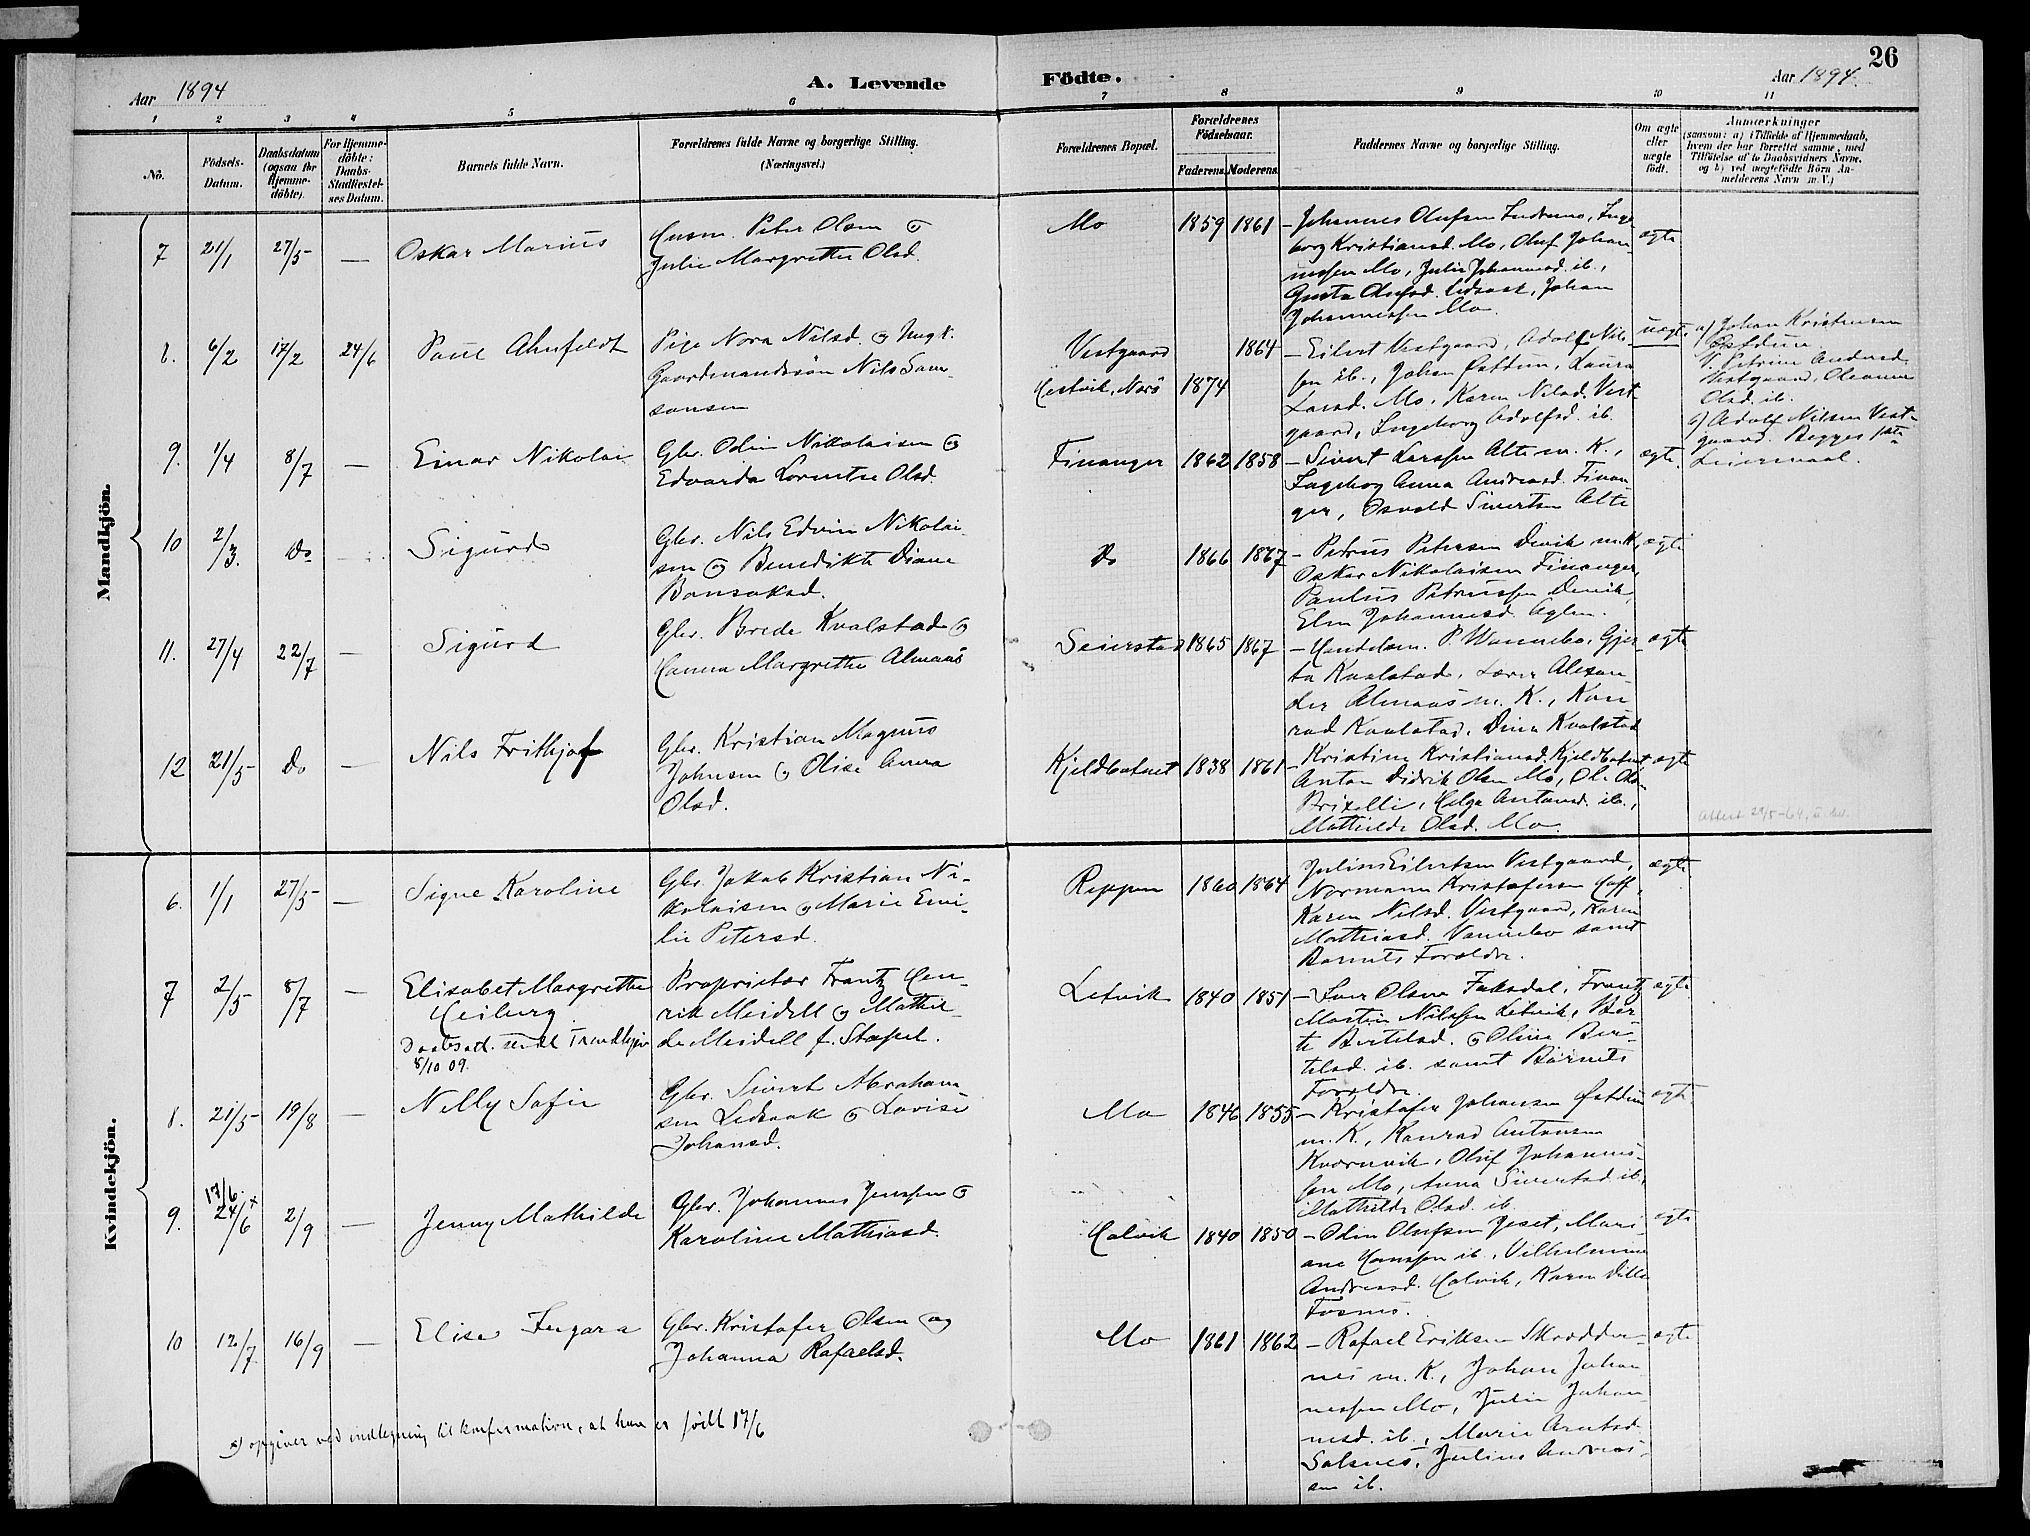 26
Aar 1894
A. Levende
Födte.
Aar 1894.
1 2 3 4 5 6 7 8 9 10 11
No.
Födsels-Datum.
Daabsdatum (ogsaa for Hjemme-döbte).
For Hjemme-döbte: Daabs-Stadfæstel-ses Datum.
Barnets fulde Navn.
Forældrenes fulde Navne og borgerlige Stilling.
(Næringsvei.)
Forældrenes Bopæl.
Forældrenes Födselsaar.
Faderens. Moderens.
Faddernes Navne og borgerlige Stilling.
Om ægte eller uægte födt.
Anmærkninger
(saasom: a) i Tilfælde af Hjemmedaab, hvem der har forrettet samme, med Tilföielse af to Daabsvidners Navne, og b) ved uægtefödte Börn Anmelderens Navn m. V.)
Mandkjön.
7 21/1 27/5 — Oskar Marius
Husm. Peter Olsen og
Julie Margrethe Olsd.
Mo 1859 1861
Johannes Olufsen, Inge-
borg Kristiansd. Mo, Oluf Johan-
nessen Mo, Julie Johannesd. ib.,
Olufsd., Johan
Johannessen Mo
ægte
8. 6/2 17/2 24/6 Paul Ahnfeldt
Pige Nora Nilsd. og Ungk.
Gaardmandssön Nils Sam-
sonsen
Vestgaard 1864
Hestvik, Nærö 1874
Eilert Vestgaard, Adolf Nil-
sen ib., Johan Östduun, Laura
Larsd. Mo, Karen Nilsd. Vest-
gaard, Ingeborg Adolfsd. ib.
uægte
a) Johan Kristensen
Östduun
V. Petrine Andersd.
Vestgaard, Oleanna
Olsd. ib.
b) Adolf Nilsen Vest-
gaard. Begges 1ste
Leiermaal.
9. 1/4 8/7 — Einar Nikolai
Gbr. Odin Nikolaisen og
Edvarda Lorentse Olsd.
Finanger 1862 1858
Sivert Larssen Alte m. K.,
Ingeborg Anna Andreasd. Finan-
ger, Osvald Sivertsen Alte
ægte
10 2/3. Do — Sigurd
Gbr. Nils Edvin Nikolai-
sen og Benedikte Diane
Bonsaksd.
Do 1866 1867
Petrus Petersen Devik m. K,
Oskar Nikolaisen Finanger,
Paulus Petrussen Devik,
Elen Johannesd. Aglen.
ægte
11. 27/4 22/7 — Sigurd
Gbr. Brede Kvalstad og
Hanna Margrethe Almaas
Seierstad 1865 1867
Handelsm. P. Wannebo, Gjer-
ta Kvalstad, Lærer Alexan-
der Almaas m. K., Kon-
rad Kvalstad, Dina Kvalstad
ægte
12 21/5 Do — Nils Frithjof
Gbr. Kristian Magnus
Johnsen og Olise Anna
Olsd.
Kjeldbotnet 1838 1861
Kristine Kristiansd. Kjeldbotnet,
Anton Didrik Olsen Mo,
Helga Antonsd. ib.,
Mathilde Olsd. Mo.
ægte
Attest 29/5-64
Kvindekjön.
6. 1/1 27/5 — Signe Karoline
Gbr. Jakob Kristian Ni-
kolaisen og Marie Emi-
lie Petersd.
Reppen 1860 1864
Julius Eilertsen Vestgaard,
Normann Kristofersen Hoff,
Karen Nilsd. Vestgaard, Karen
Mathiasd. Vannebo samt
Barnets Forældre.
ægte
7 2/5 8/7 — Elisabet Margrethe
Heiberg
Daabsatt. sendt Trondhjem
8/10 09.
Proprietær Frantz Hen-
rik Meidell og Mathil-
de Meidell f. Stapel.
Letvik 1840 1851
Olsen Faksdal, Frantz
Martin Nilssen Letvik, Ber-
te Bertelsd. og Oline Ber-
telsd. ib. samt Barnets
Forældre.
ægte
8. 21/5 19/8 — Nelly Sofie
Gbr. Sivert Abraham-
sen og Lovise
Johansd.
Mo 1846 1855
Kristofer Johansen Östduun
m. K., Konrad Antonsen
Kvarnvik, Oluf Johannes-
sen Mo, Anna Sivertsd ib.,
Mathilde Olsd. ib.
ægte
17/6.
9. 24/6 x 2/9 — Jenny Mathilde
Gbr. Johannes Jenssen og
Karoline Mathiasd.
Halvik 1840 1850
Odin Olufsen Jöset, Mari-
ane Hanssen ib., Vilhelmine
Andreasd. Halvik, Karen Dille
Fosnes.
ægte
10 12/7 16/9 — Elise Ingara
Gbr. Kristofer Olsen og
Johanna Rafaelsd.
Mo 1861 1862
Rafael Eriksen Skrödder-
nes m. K., Johan Johan-
nessen Mo, Julie Johan-
nesd. ib., Marie Arntsd.
Salsnes, Julius Andreas-
sen ib.
ægte
x) opgiver ved indtegning til konfirmation, at hun er født 17/6